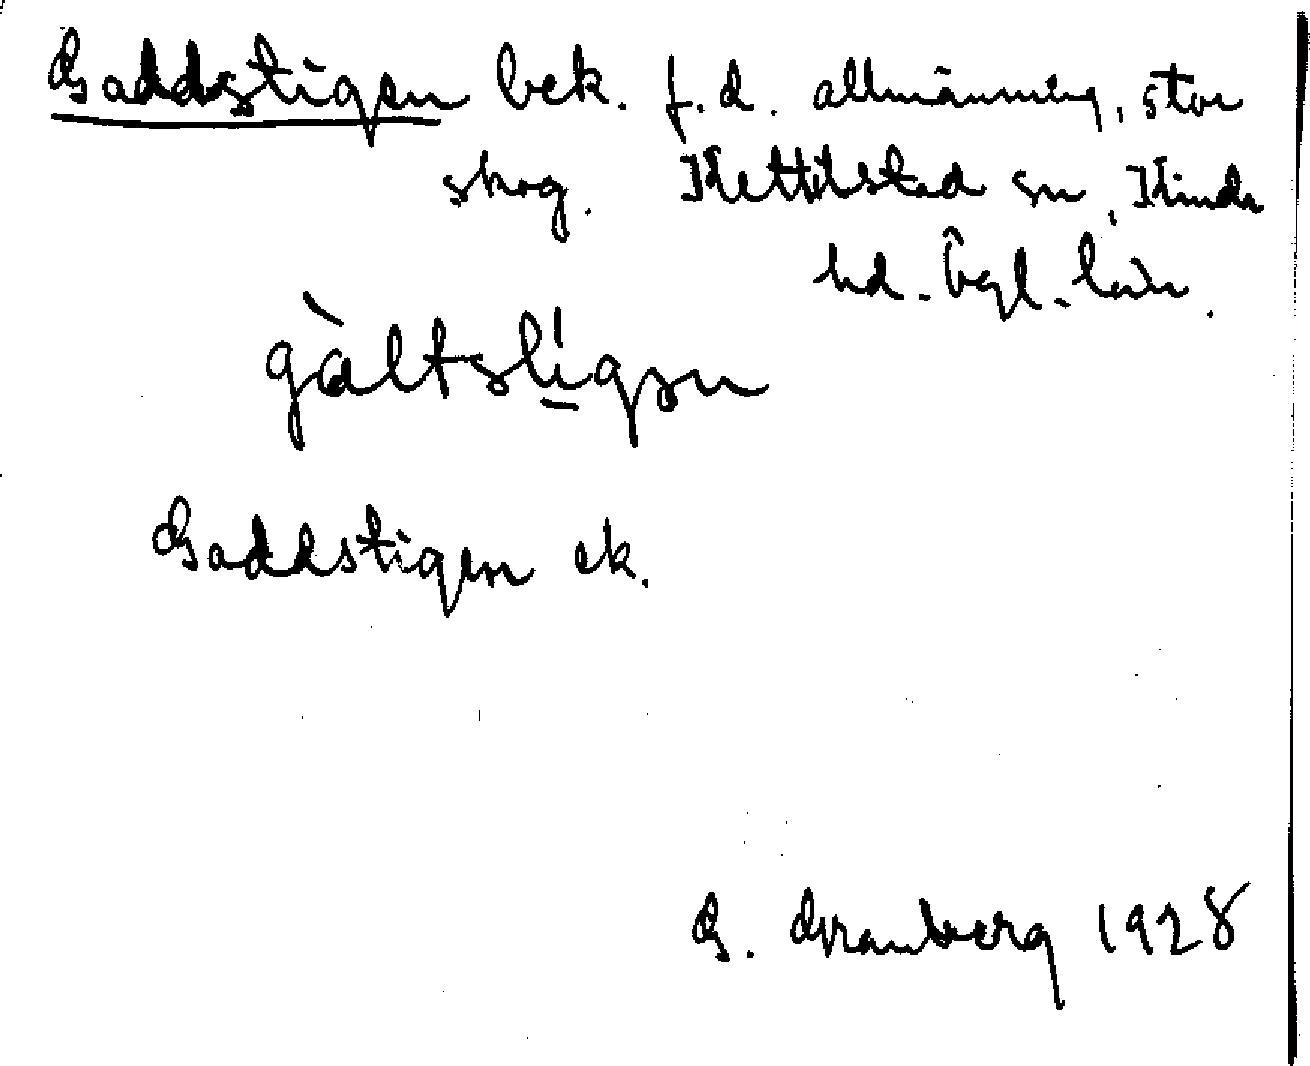 Gaddstigen bek. f.d. allmänning, stor
skog. Kettilstad sn, Kinda
hd. Ögl. län.
gàltsti̱gən
Gaddstigen ek.
G. Granberg 1928